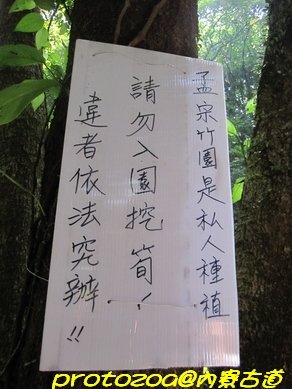 孟宗竹園是私人種植
請勿入園挖筍!
違者依法究辦!!
protozoa@內寮古道